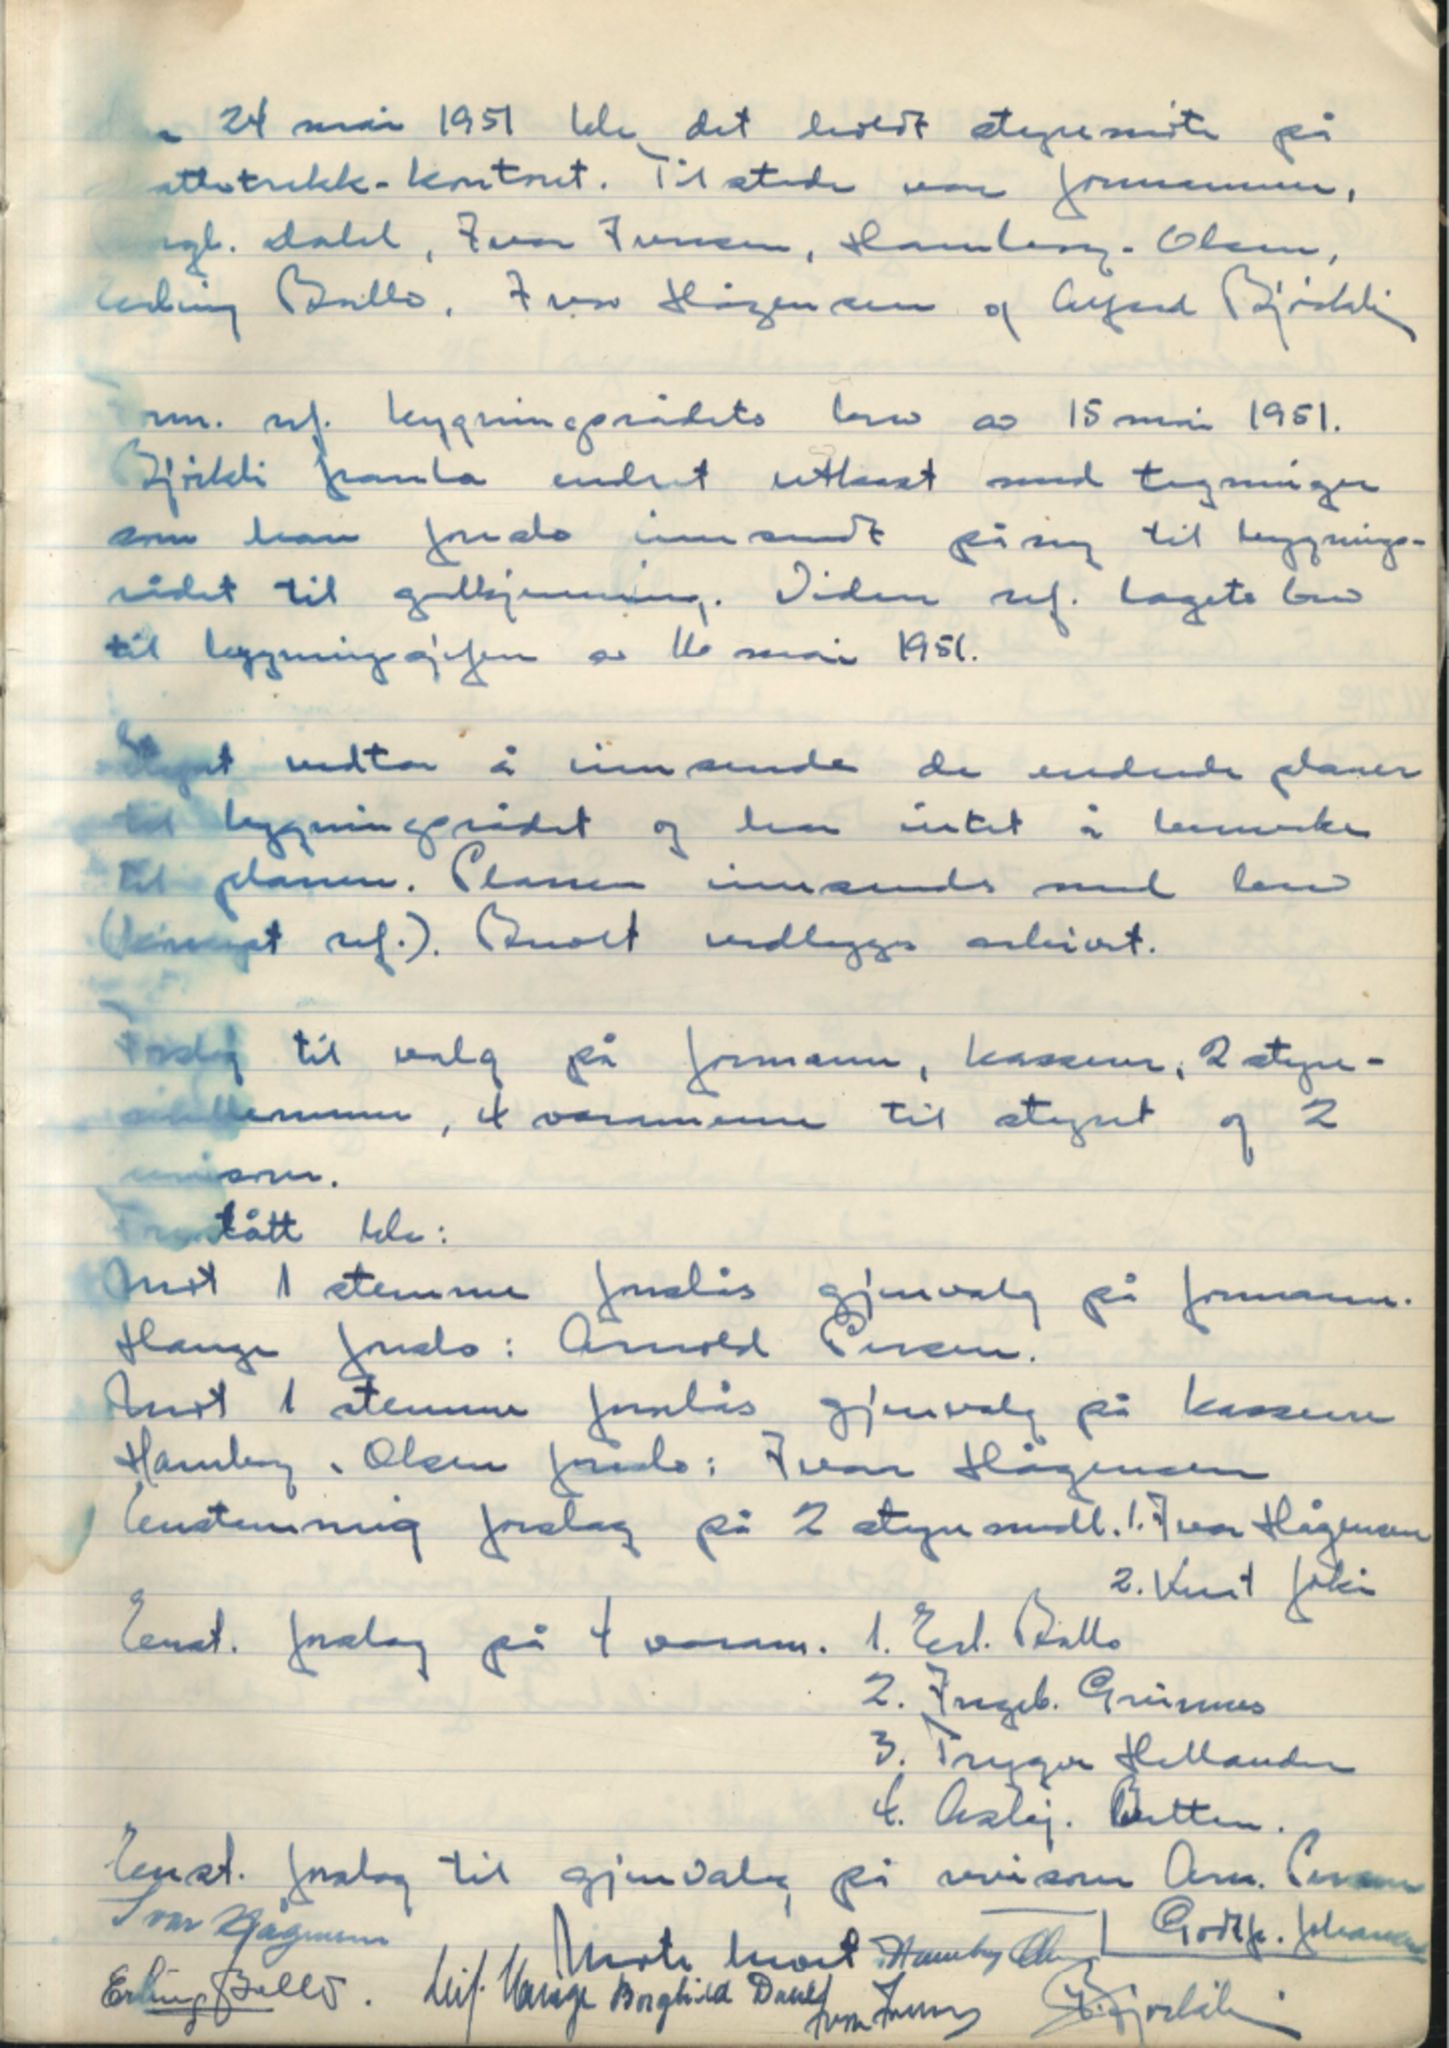 24 mai 1951 ble det holdt styremöte på
attetrekk-kontoret. Tilstede var formannen,
Dahl, Ivar Iversen, Hamberg-Olsen,
Erling Ballo, Ivar Hågensen og Alfred Bjørkli
Form. ref. bygningsrådets brev av 15 mai 1951.
Bjørkli framla endret utkast med tegninger
som han foreslo innsendt påny til bygnings-
rådet til godkjenning. Videre ref. lagets brev
til bygningssjefen av 16 mai 1951.
Styret vedtar å innsende de endrede planer
til bygningsrådet og har intet å bemerke
til planen. Planen innsendes med brev
(Konsept ref.). Brevet vedlegges arkivet.
Forslag til valg på formann, kasserer, 2 styre-
medlemmer, 4 varamenn til styret og 2
revisorer.
Foreslått ble:
Mot 1 stemme foreslås gjenvalg på formann.
Hauge foreslo: Arnold Persen.
Mot 1 stemme foreslås gjenvalg på kasserer
Hamberg-Olsen foreslo: Ivar Hågensen
Enstemmig forslag på 2 styremedl. 1. Ivar Hågensen
2. Knut
Enst. forslag på 4 varam. 1. Erl. Ballo
2. Ingeb. Grönnes
3. Trygve Hellander
4. Betten.
Enst. forslag til gjenvalg på revisorer Arn. Persen
Godtf. Johansen
Ivar Hågensen
Møte hevet Hamberg Olsen
Erling Ballo. Leif Hauge Borghild Dahl
Ivar Iversen Bjørkli